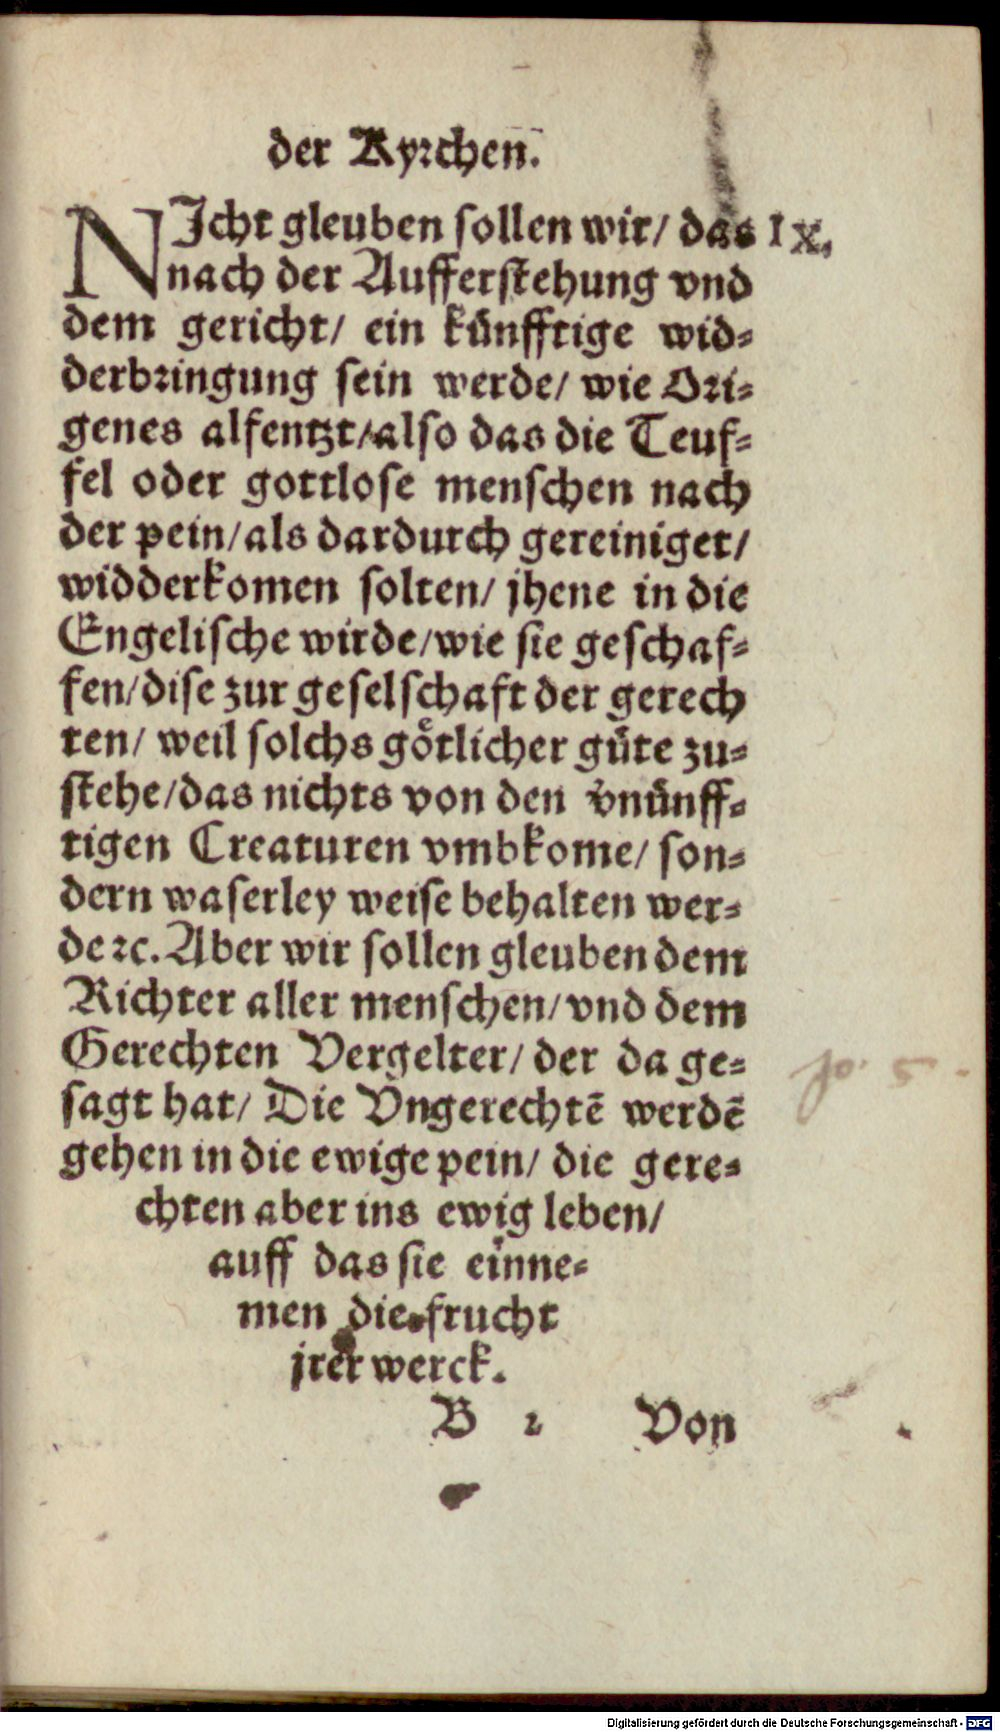 der Kyrchen.
NJcht gleuben sollen wir/ das IX.
nach der Aufferstehung vnd
dem gericht/ ein künfftige wid=
derbringung sein werde/ wie Ori=
genes alfentzt/also das die Teuf=
fel oder gottlose menschen nach
der pein/als dardurch gereiniget/
widderkomen solten/ jhene in die
Engelische wirde/wie sie geschaf=
fen/dise zur geselschaft der gerech
ten/ weil solchs götlicher güte zu=
stehe/das nichts von den vnünff=
tigen Creaturen vmbkome/ son=
dern waserley weise behalten wer=
de ꝛc. Aber wir sollen gleuben dem
Richter aller menschen/vnd dem
Gerechten Vergelter/ der da ge=
sagt hat/ Die Vngerechtē werdē
gehen in die ewige pein/ die gere=
chten aber ins ewig leben/
auff das sie einne=
men die frucht
jrer werck.
B 2 Von
Jo. 5.
Digitalisierung gefördert durch die Deutsche Forschungsgemeinschaft - DFG